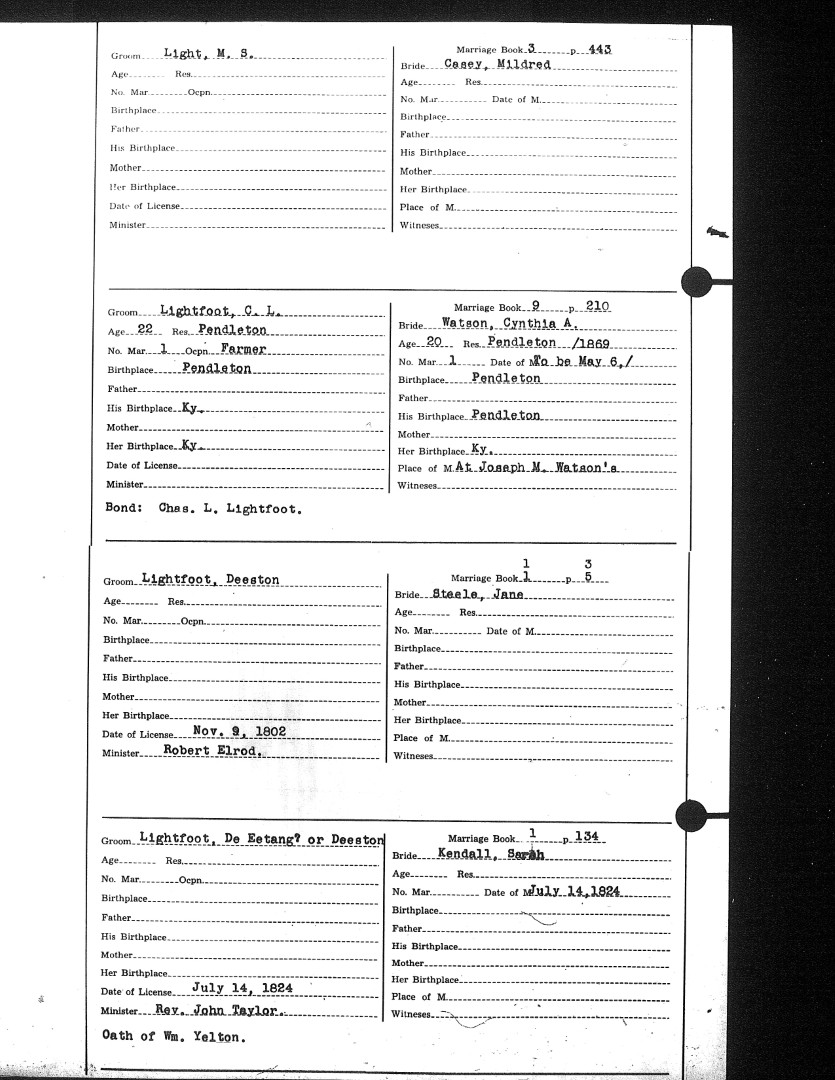 Groom Light, M. S.
Age Res.
No. Mar Ocpn.
Birthplace
Father
His Birthplace
Mother
Her Birthplace
Date of License
Minister
Marriage Book 3 p. 443
Bride Casey, Mildred
Age Res.
No. Mar. Date of M.
Birthplace
Father
His Birthplace
Mother
Her Birthplace
Place of M.
Witnesses
Groom Lightfoot, C. L.
Age 22 Res. Pendleton
No. Mar. 1 Ocpn. Farmer
Birthplace Pendleton
Father
His Birthplace Ky.
Mother
Her Birthplace Ky.
Date of License
Minister
Bond: Chas. L. Lightfoot.
Marriage Book 9 p. 210
Bride Watson, Cynthia A.
Age 20 Res. Pendleton /1869
No. Mar. 1 Date of M To be May 6,/
Birthplace Pendleton
Father
His Birthplace Pendleton
Mother
Her Birthplace Ky.
Place of M. At Joseph M. Watson's
Witnesses
Groom Lightfoot, Deeston
Age Res.
No. Mar. Ocpn.
Birthplace
Father
His Birthplace
Mother
Her Birthplace
Date of License Nov. 9, 1802
Minister Robert Elrod.
1 3
Marriage Book 1 p. 5
Bride Steele, Jane
Age Res.
No. Mar. Date of M.
Birthplace
Father
His Birthplace
Mother
Her Birthplace
Place of M.
Witnesses
Groom Lightfoot, De Eetang? or Deeston
Age Res.
No. Mar. Ocpn.
Birthplace
Father
His Birthplace
Mother
Her Birthplace
Date of License July 14, 1824
Minister Rev. John Taylor.
Oath of Wm. Yelton.
Marriage Book 1 p. 134
Bride Kendall, Sarah
Age Res.
No. Mar. Date of M July 14,1824
Birthplace
Father
His Birthplace
Mother
Her Birthplace
Place of M.
Witnesses